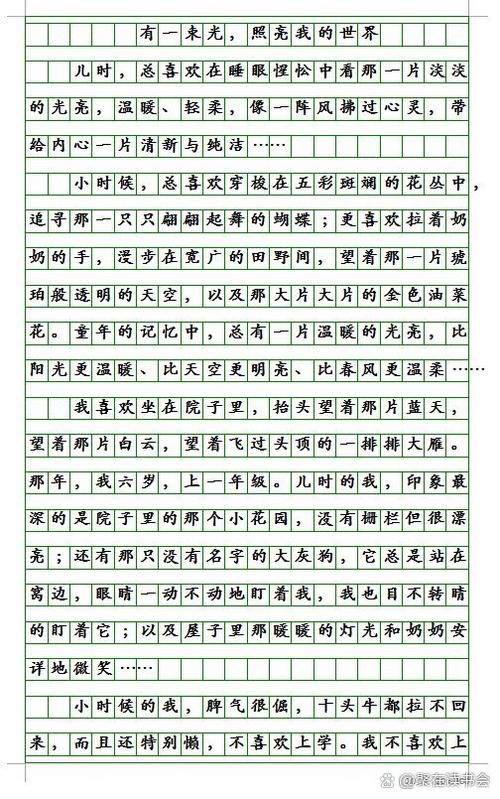 有一束光，照亮我的世界
儿时，总喜欢在睡眼惺忪中看那一片淡淡
的光亮，温暖、轻柔，像一阵风拂过心灵，带
给内心一片清新与纯洁……
小时候，总喜欢穿梭在五彩斑斓的花丛中，
追寻那一只只翩翩起舞的蝴蝶；更喜欢拉着奶
奶的手，漫步在宽广的田野间，望着那一片琥
珀般透明的天空，以及那大片大片的金色油菜
花。童年的记忆中，总有一片温暖的光亮，比
阳光更温暖、比天空更明亮、比春风更温柔……
我喜欢坐在院子里，抬头望着那片蓝天，
望着那片白云，望着飞过头顶的一排排大雁。
那年，我六岁，上一年级。儿时的我，印象最
深的是院子里的那个小花园，没有栅栏但很漂
亮；还有那只没有名字的大灰狗，它总是站在
窝边，眼睛一动不动地盯着我，我也目不转睛
的盯着它；以及屋子里那暖暖的灯光和奶奶安
详地微笑……
小时候的我，脾气很倔，十头牛都拉不回
来，而且还特别懒，不喜欢上学。我不喜欢上
@聚在读书会